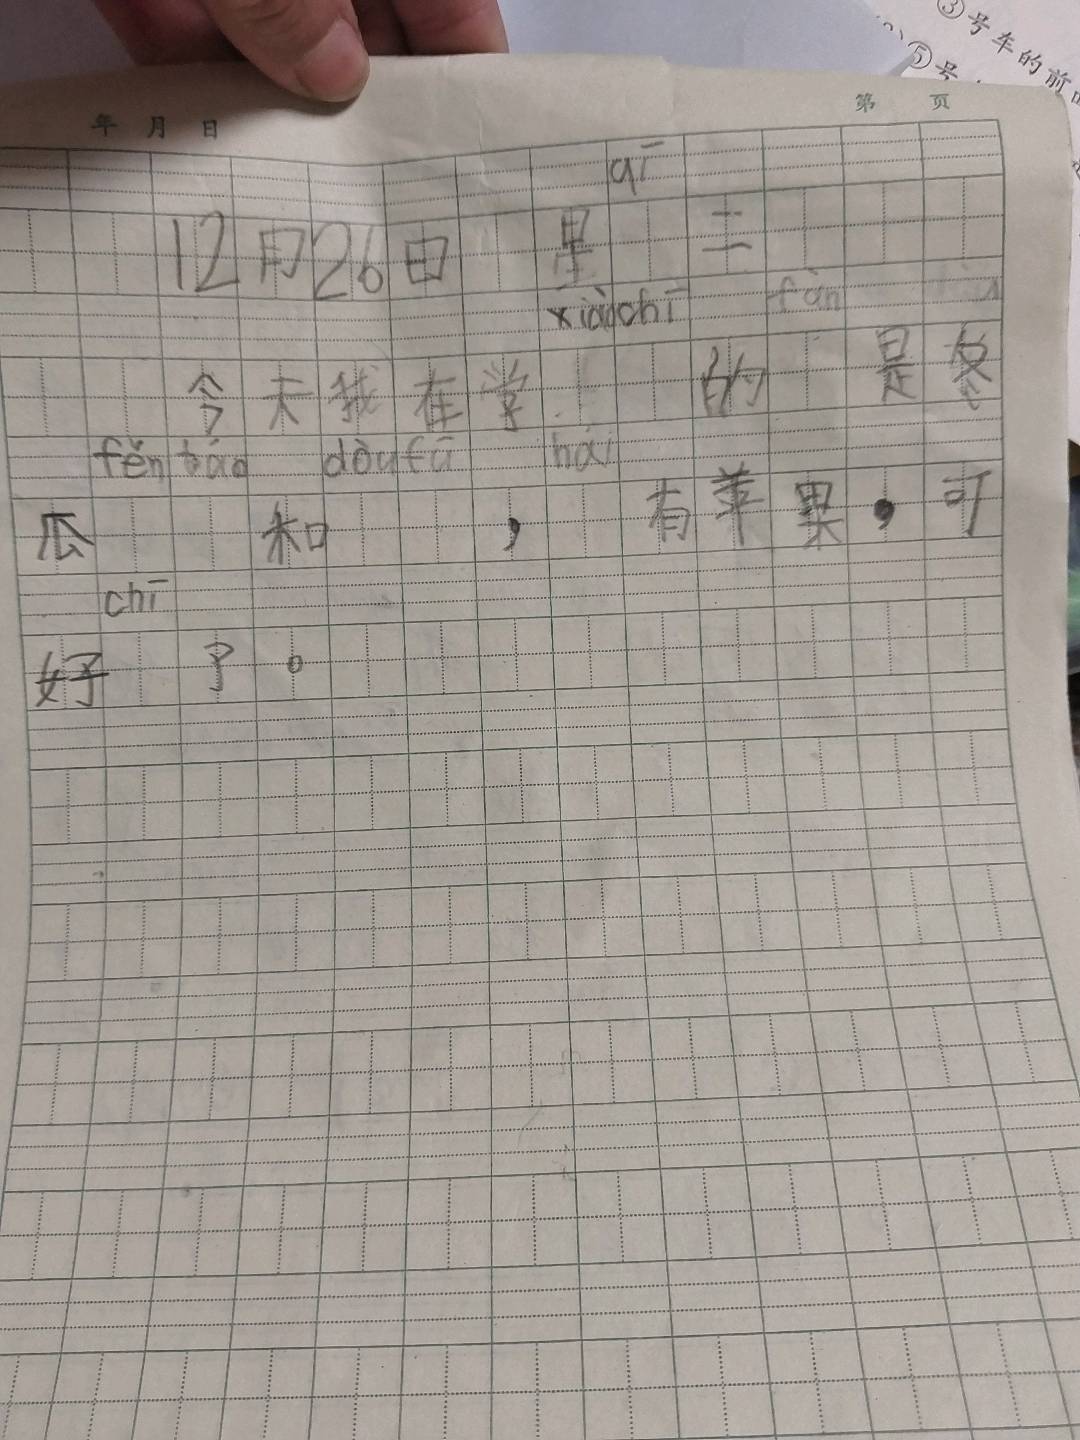 ③号车的前面
⑤号
年 月 日
第 页
qī
12月26日 星 二
xiàochī fàn
今天我在学 的 是冬
fěn tāo dòufu hái
瓜 和 , 有苹果,可
chī
好 了。